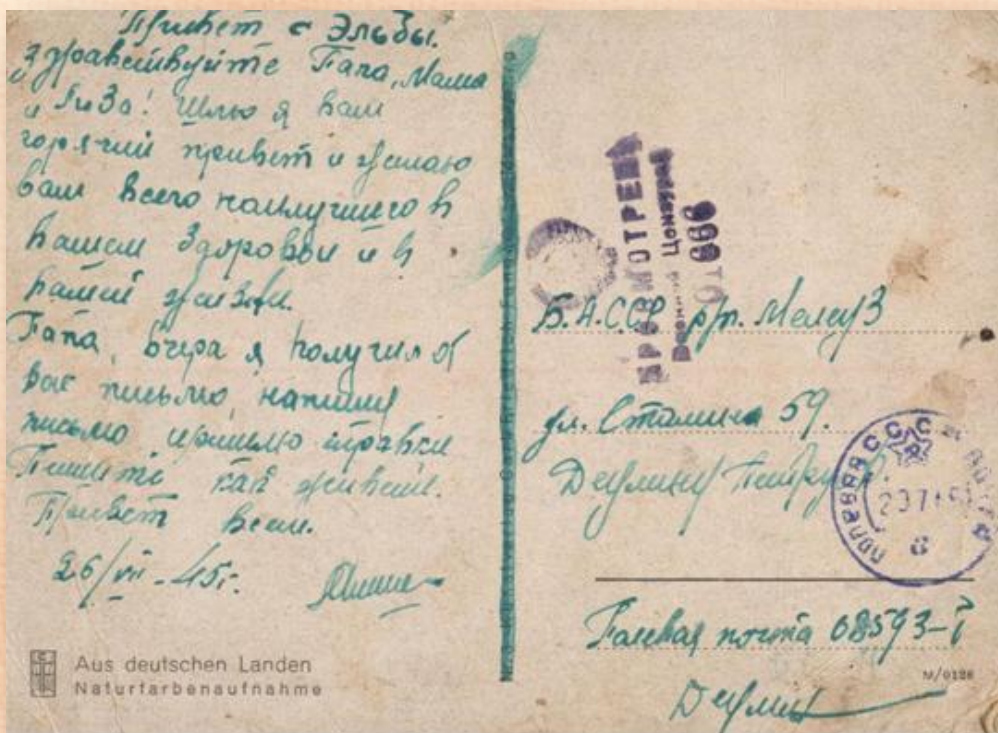 Привет с Эльбы.
Здравствуйте Папа, Мама
и Лиза! Шлю я вам
горячий привет и желаю
вам всего наилучшего в
вашем здоровьи и в
вашей жизни.
Папа, вчера я получил от
вас письмо, напишу
письмо пришлю
Пишите как живете.
Привет всем.
26/VII-45г.
Aus deutschen Landen
Naturfarbenaufnahme
ПРОСМОТРЕНО
Военной Цензурой
Б.А.ССР р/п. Мелеуз
ул. Сталина 59.
Деулину Петру
СССР
ПОЛЕВАЯ ПОЧТА
Полевая почта 08593-
M/0128
Деулин